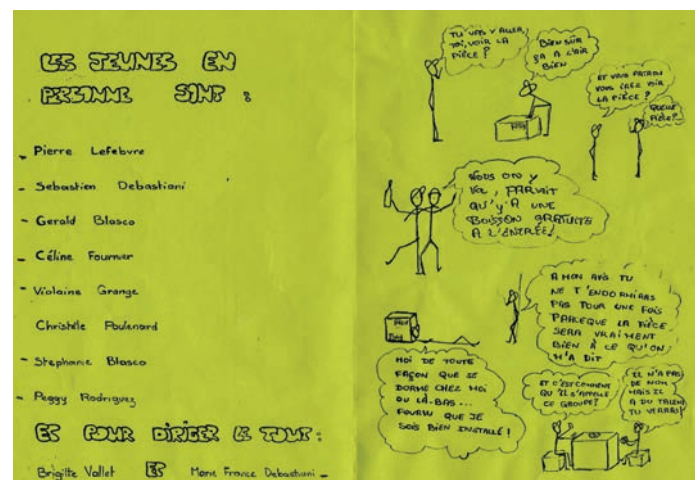 LES JEUNES EN
PERSONNE SONT :
- Pierre Lefebvre
- Sebastien Debastiani
- Gerald Blasco
- Céline Fournier
- Violaine Grange
Christèle Poulenard
- Stephanie Blasco
- Peggy Rodriguez
ES POUR DIRIGER LE TOUT :
Brigitte Vallet ES Marie France Debastiani -
TU VAS Y ALLER,
TOI, VOIR LA
PIÈCE ?
BIEN SÛR
ÇA A L'AIR
BIEN
ET VOUS PATRON
VOUS IREZ VOIR
LA PIÈCE ?
QUELLE
PIÈCE ?
NOUS ON Y
VA, PARAIT
QU'Y'A UNE
BOISSON GRATUITE
A L'ENTRÉE !
A MON AVIS TU
NE T'ENDORMIRAS
PAS POUR UNE FOIS
PARCEQUE LA PIÈCE
SERA VRAIMENT
BIEN À CE QU'ON
M'A DIT
MOI DE TOUTE
FAÇON QUE JE
DORME CHEZ MOI
OU LÀ-BAS...
POURVU QUE JE
SOIS BIEN INSTALLÉ !
ET C'EST COMMENT
QU'IL S'APPELLE
CE GROUPE ?
IL N'A PAS
DE NOM
MAIS IL
A DU TALENT
TU VERRAS !